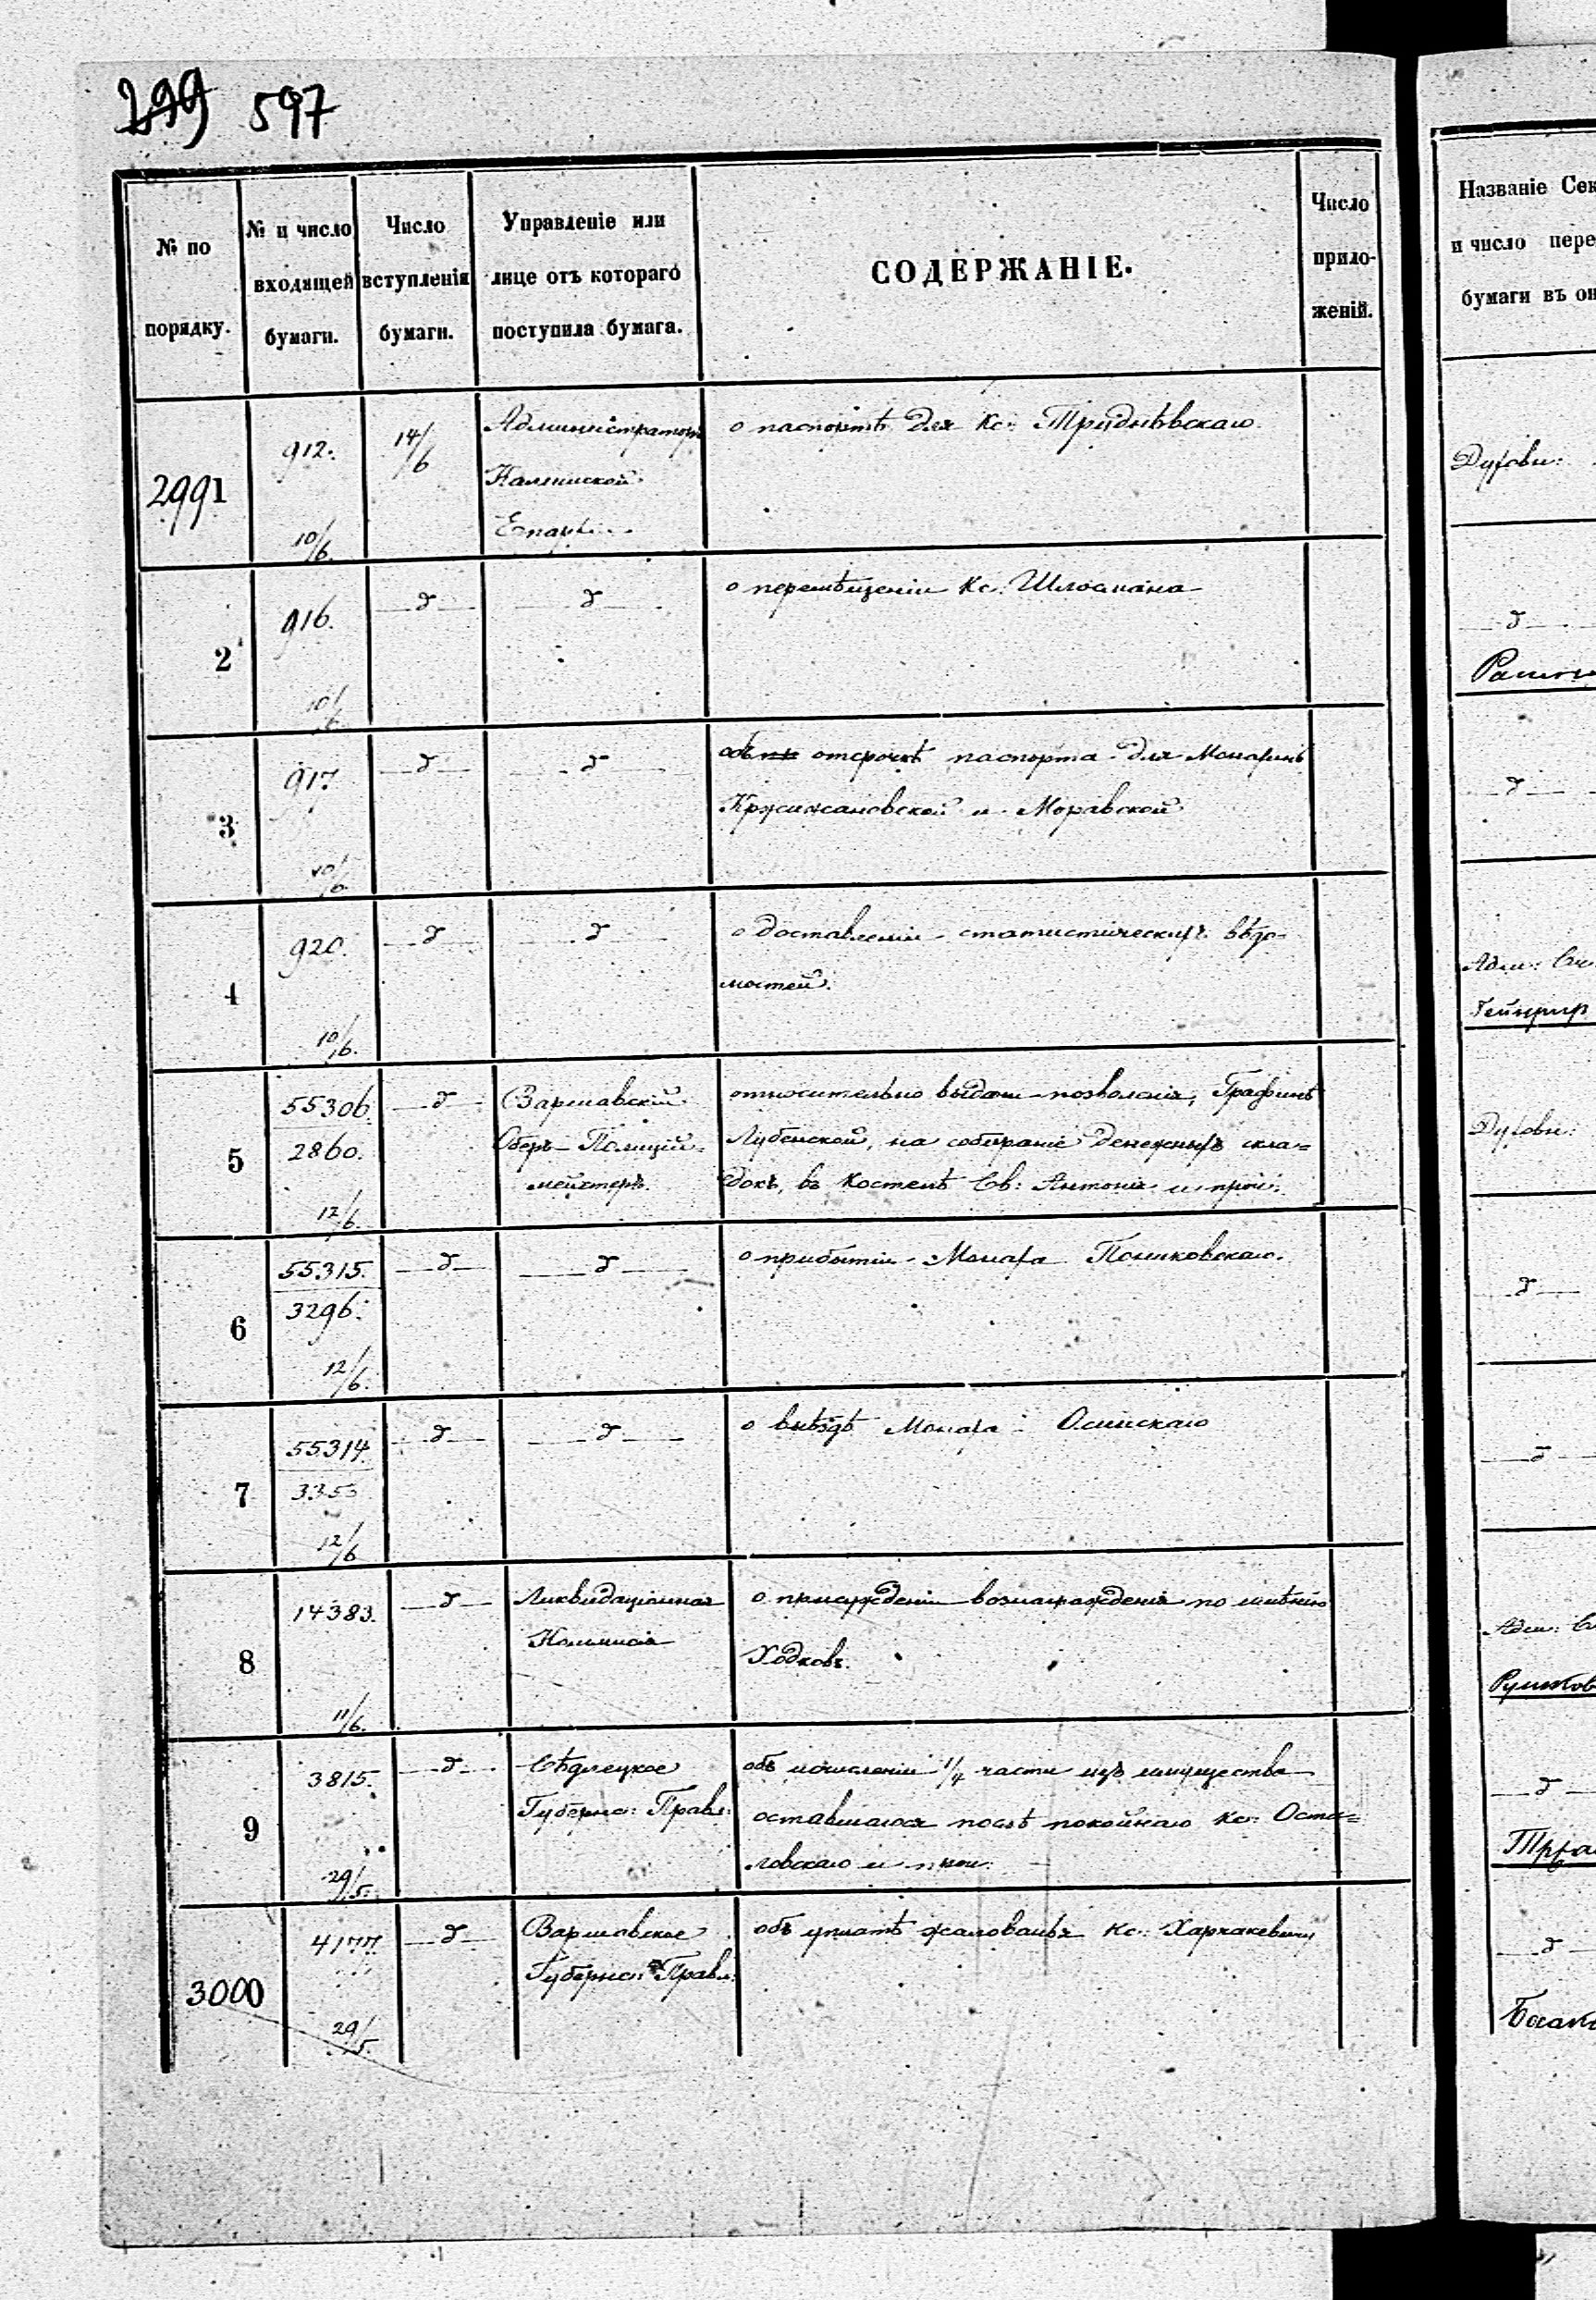 299 597
№ по порядку.
№ и число входящей бумаги.
Число вступленія бумаги.
Управленіе или лице отъ котораго поступила бумага.
СОДЕРЖАНІЕ.
Число приложеній.
2991
912.
10/6.
14/6
Администраторъ
Калишской
Епархіи
о паспортѣ для Кс:
2
916.
10/6
д
д
о перемѣщеніи Кс: Шлосмана
3
917.
10/6.
д
д
отсрочкѣ паспорта для Монахинь
Кржижановской и Моравской
4
920.
10/6.
д
д
о доставленіи статистическихъ вѣдо-
мостей.
5
55306
2860.
12/6.
д
Варшавскій
Оберъ-Полицій-
мейстеръ.
относительно выдачи позволенія, Графинѣ
Лубенской, на собираніе денежныхъ скла-
докъ, въ Костелѣ Св: Антонія и проч:
6
55315.
3296.
12/6.
д
д
о прибытіи Монаха Пониковскаго.
7
55314.
12/6
д
д
о Монаха Осинскаго
8
14383.
11/6.
д
Ликвидаціонная
Комисія
о присужденіи вознагражденія по имѣнію
Ходковъ.
9
3815.
29/5.
д
Сѣдлецкое
Губернс: Правл:
объ исчисленіи 1/4 части изъ имущества
оставшагося послѣ покойнаго Кс: Оста-
ловскаго и проч:
3000
4177.
29/5.
д
Варшавское
Губернс: Правл:
объ уплатѣ жалованья Кс:
Названіе Сек
и число пере
бумаги въ он
Духовн:
д
д
Адм: Сч
Духовн:
д
д
Адм: С
д
д